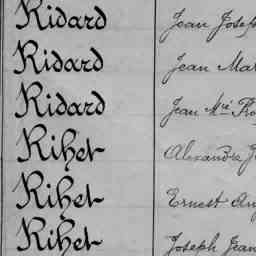 Ridard Jean Josep
Ridard Jean Mat
Ridard Jean Mie
Rihet Alexandre J
Rihet Ernest Au
Rihet Joseph Jean